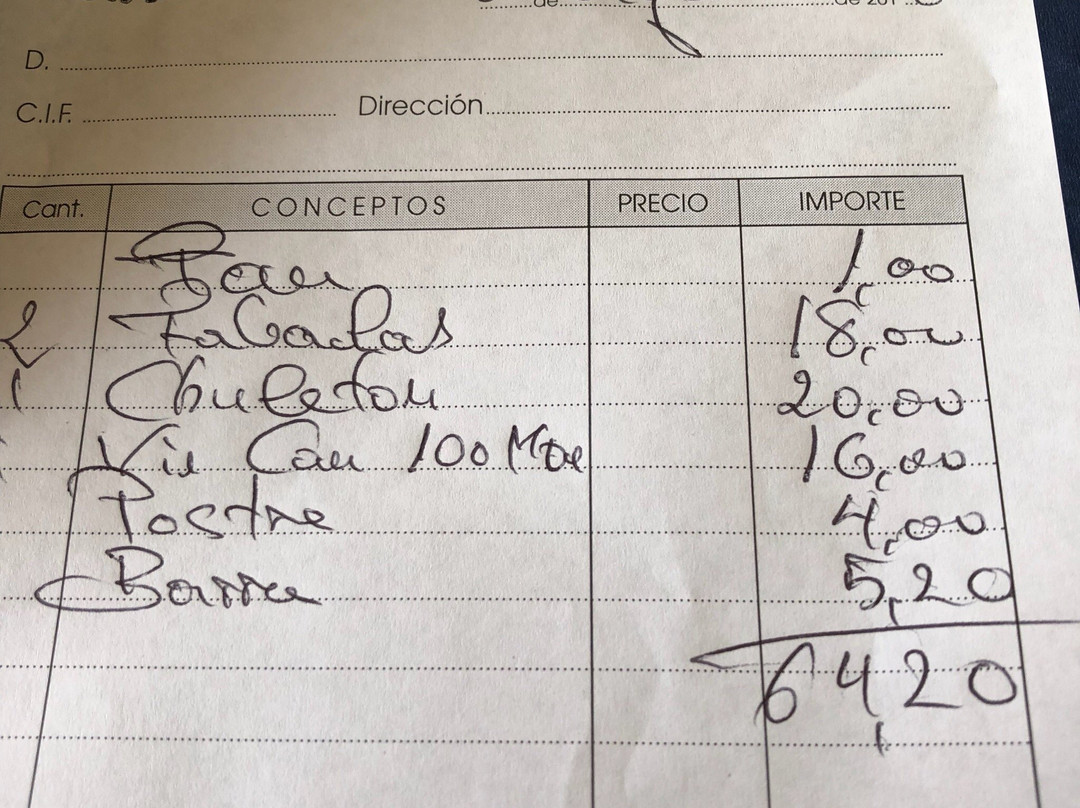 de de 201
D.
C.I.F. Dirección
Cant. CONCEPTOS PRECIO IMPORTE
Pan 1,00
2 Fabadas 18,00
1 Chuleton 20,00
Can 100 16,00
Postre 4,00
Barra 5,20
64,20